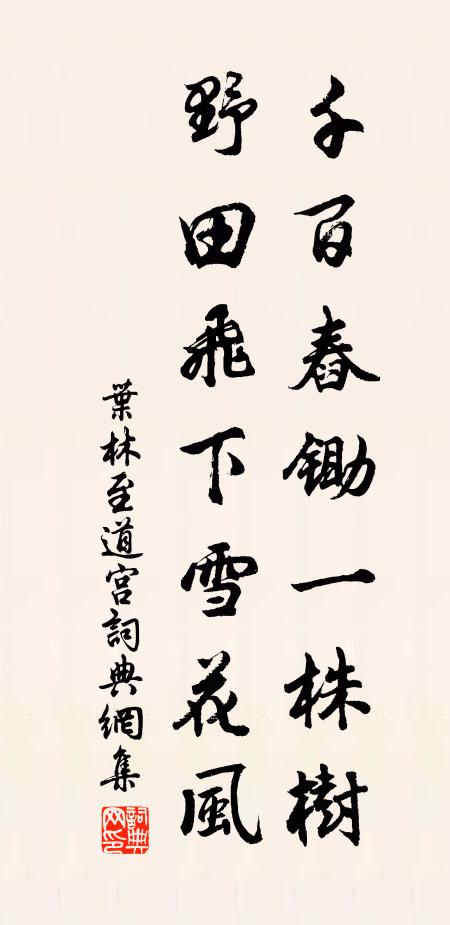 千百舂鋤一株樹
野田飛下雪花風
葉林至道宮詞典網集
詞典网印